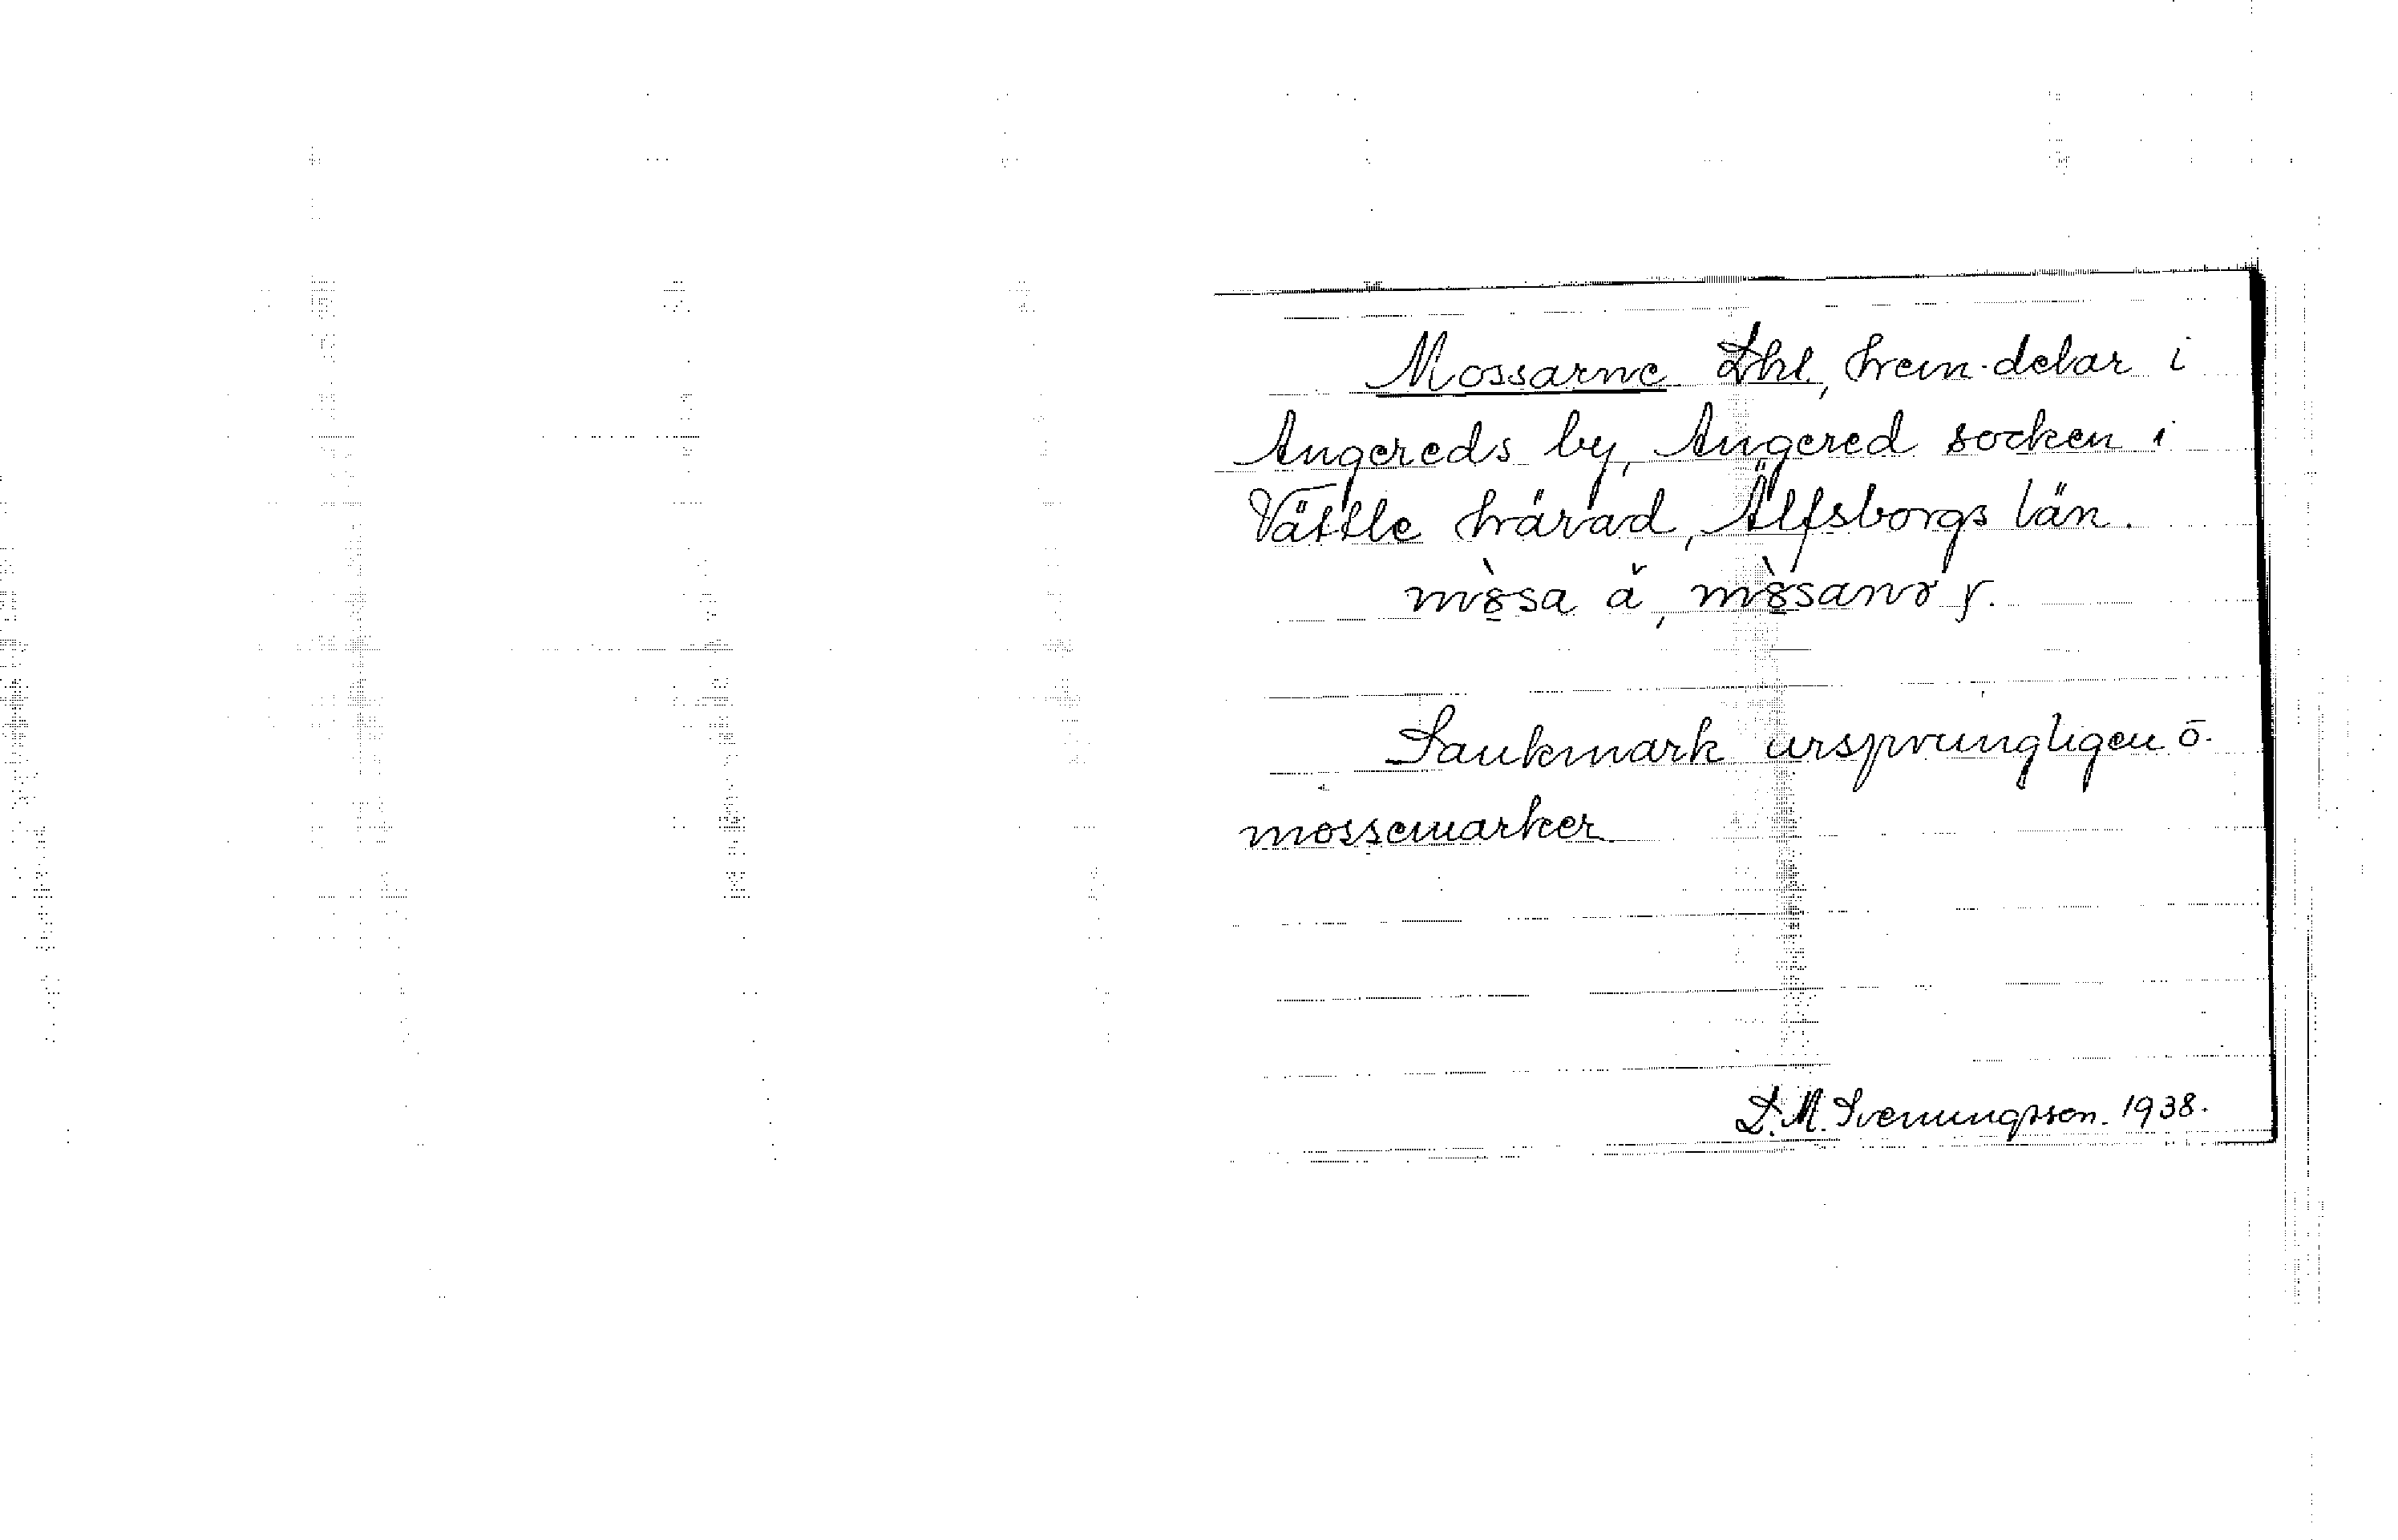 Mossarne Lht, hem.delar i
Angereds by, Angered socken i
Vättle härad, Älfsborgs län.
Sankmark ursprungligen o.
mossemarker
L. M. Svenungsson. 1938.